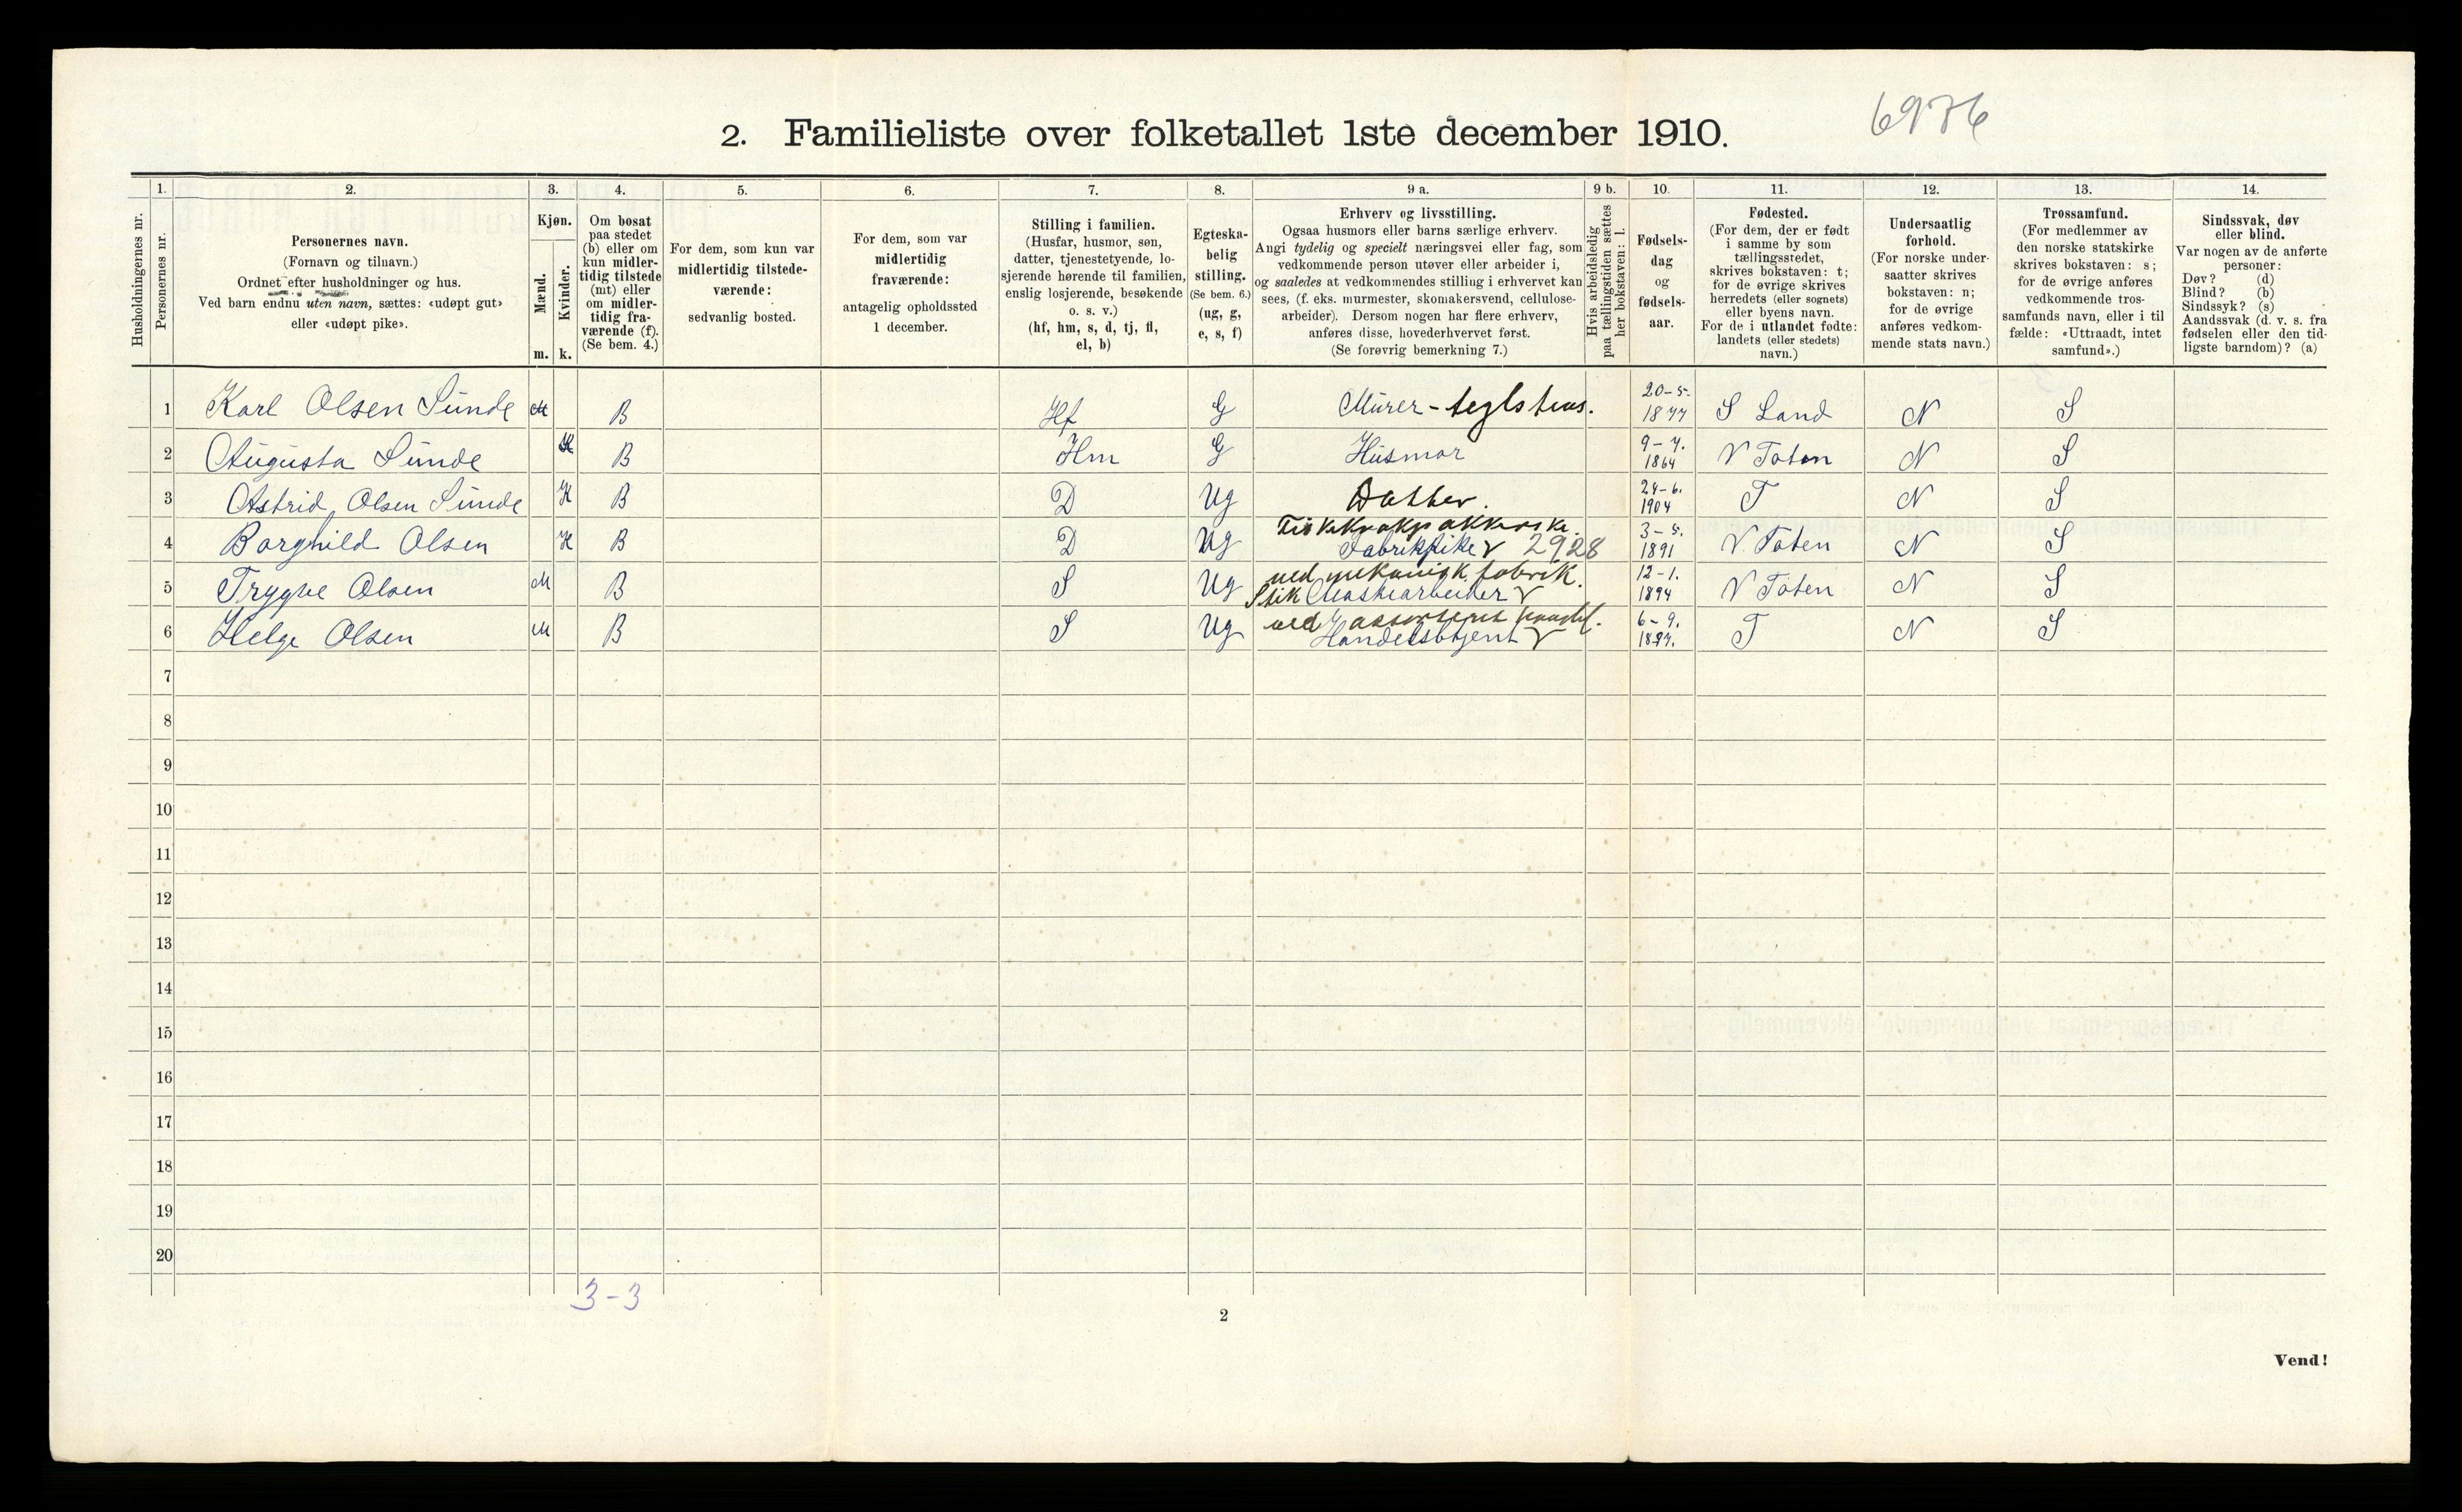 6976
2. Familieliste over folketallet 1ste december 1910.
1. 2. 3. 4. 5. 6. 7. 8. 9 a. 9 b. 10. 11. 12. 13. 14.
Husholdningernes nr.
Personernes nr.
Personernes navn.
(Fornavn og tilnavn.)
Ordnet efter husholdninger og hus.
Ved barn endnu uten navn, sættes: «udøpt gut»
eller «udøpt pike».
Kjøn.
Mænd.
m.
Kvinder.
k.
Om bosat
paa stedet
(b) eller om
kun midler-
tidig tilstede
(mt) eller
om midler-
tidig fra-
værende (f).
(Se bem. 4.)
For dem, som kun var
midlertidig tilstede-
værende:
sedvanlig bosted.
For dem, som var
midlertidig
fraværende:
antagelig opholdssted
1 december.
Stilling i familien.
(Husfar, husmor, søn,
datter, tjenestetyende, lo-
sjerende hørende til familien,
enslig losjerende, besøkende
o. s. v.)
(hf, hm, s, d, tj, fl,
el, b)
Egteska-
belig
stilling.
(Se bem. 6.)
(ug, g,
e, s, f)
Erhverv og livsstilling.
Ogsaa husmors eller barns særlige erhverv.
Angi tydelig og specielt næringsvei eller fag, som
vedkommende person utøver eller arbeider i,
og saaledes at vedkommendes stilling i erhvervet kan
sees, (f. eks. murmester, skomakersvend, cellulose-
arbeider). Dersom nogen har flere erhverv,
anføres disse, hovederhvervet først.
(Se forøvrig bemerkning 7.)
Hvis arbeidsledig
paa tællingstiden sættes
her bokstaven: l.
Fødsels-
dag
og
fødsels-
aar.
Fødested.
(For dem, der er født
i samme by som
tællingsstedet,
skrives bokstaven: t;
for de øvrige skrives
herredets (eller sognets)
eller byens navn.
For de i utlandet fødte:
landets (eller stedets)
navn.)
Undersaatlig
forhold.
(For norske under-
saatter skrives
bokstaven: n;
for de øvrige
anføres vedkom-
mende stats navn.)
Trossamfund.
(For medlemmer av
den norske statskirke
skrives bokstaven: s;
for de øvrige anføres
vedkommende tros-
samfunds navn, eller i til
fælde: «Uttraadt, intet
samfund».)
Sindssvak, døv
eller blind.
Var nogen av de anførte
personer:
Døv? (d)
Blind? (b)
Sindssyk? (s)
Aandssvak (d. v. s. fra
fødselen eller den tid-
ligste barndom)? (a)
1 Karl Olsen Sunde M B Hf G Murer - teglstens. 20-5. 1877 S Land N S
2 Augusta Sunde K B Hm G Husmor 9-7. 1864 V Toten N S
3 Astrid Olsen Sunde K B D Ug Datter. 24-6. 1904 T N S
4 Borghild Olsen K B D Ug Fiskekrokpakkerske. Fabrikpike 2928 3-5. 1891 V. Toten N S
5 Trygve Olsen M B S Ug ved mekanisk fabrik. 12-1. 1894 V Toten N S
6 Helge Olsen M B S Ug ved assorteret handel. Handelsbtjent 6-9. T N S
7
8
9
10
11
12
13
14
15
16
17
18
19
20
3-3
2
Vend!